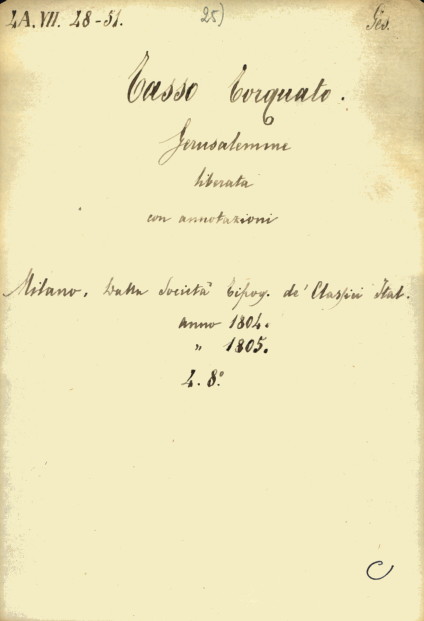 4A. VII. 48-51. 25) Ges.
Tasso Torquato.
Jerusalemme
liberata
con annotazioni
Milano, Dalla Società Tipog. de' Classici Ital.
anno 1804.
" 1805.
4. 8.°
C